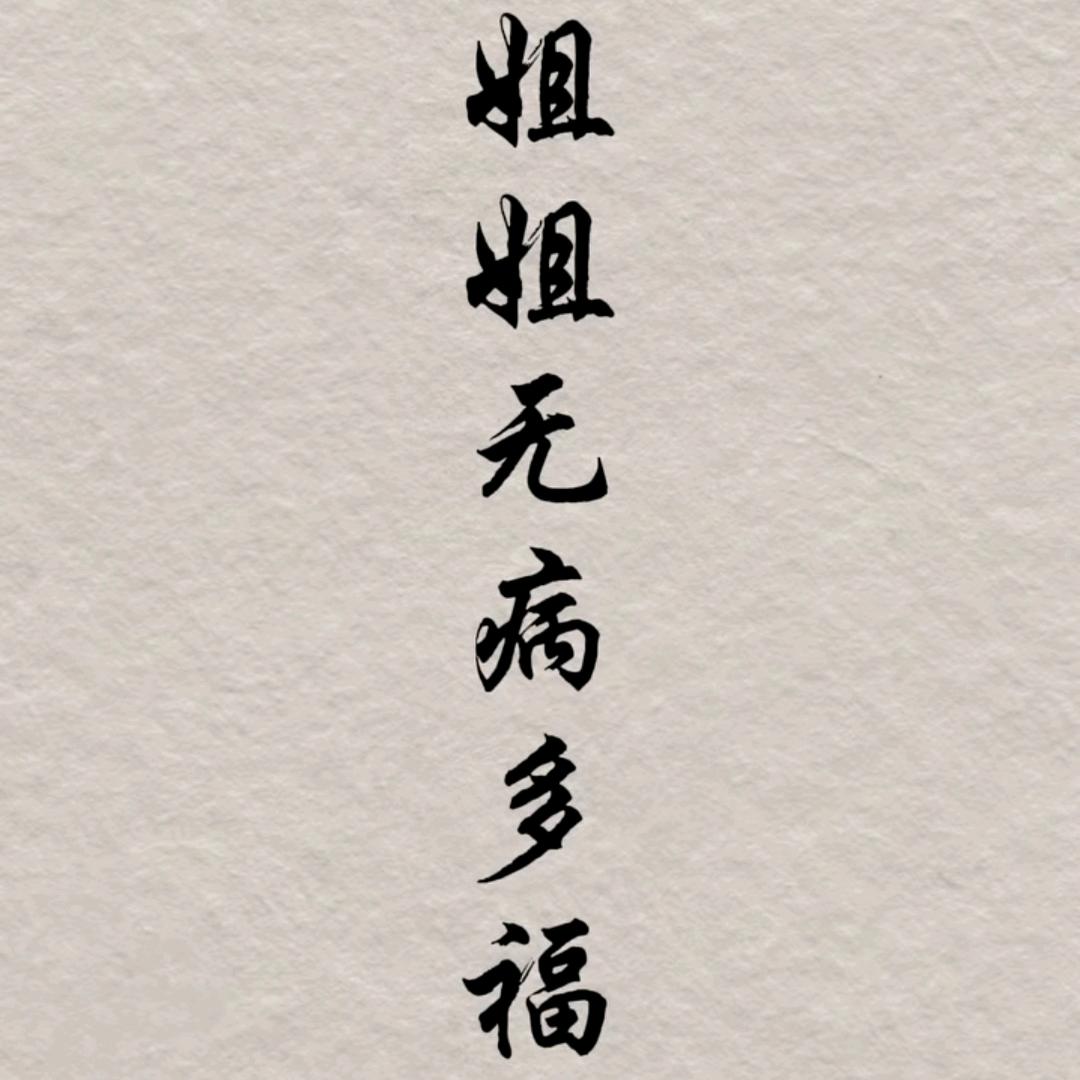 姐姐无病多福